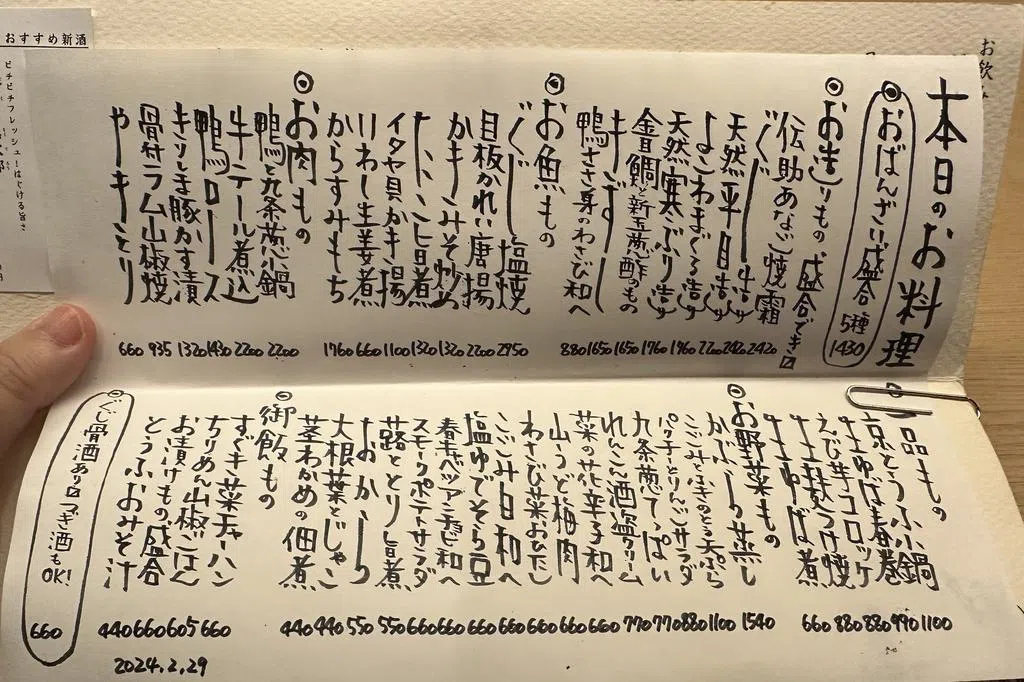 お飲み
本日のお料理
◎おばんざい盛合 5種 1430
◎お造りもの 盛合でき〼
伝助あなご焼霜 2420
ぐじ造り 2420
天然平目造り 2200
よこわまぐろ造り 1960
天然寒ぶり造り 1760
金目鯛と新玉葱酢のもの 1650
きずし 1650
鴨ささ身のわさび和へ 880
◎お魚もの
ぐじ塩焼 2950
目板かれい唐揚 2200
かきみそ炒め 1320
たいこ旨煮 1320
イタヤ貝かき揚 1100
いわし生姜煮 660
からすみもち 1760
◎お肉もの
鴨と九条葱小鍋 2200
牛テール煮込 2200
鴨ロース 1430
きりしま豚かす漬 1320
骨付ラム山椒焼 935
やきとり 660
◎一品もの
京とうふ小鍋 1100
生ゆば春巻 990
えび芋コロッケ 880
生麩つけ焼 880
生ゆば煮 660
◎お野菜もの
かぶら蒸し 1540
こごみとふきのとう天ぷら 1100
パクチーとりんごサラダ 880
九条葱てっぱい 770
れんこん酒盗クリーム 770
菜の花辛子和へ 660
山うど梅肉 660
わさび菜おひたし 660
こごみ白和へ 660
塩ゆでそら豆 660
春キャベツアンチョビ和へ 660
スモークポテトサラダ 660
蕗ととり旨煮 550
おから 550
大根葉とじゃこ 440
茎わかめの佃煮 440
◎御飯もの
すぐき菜チャーハン 660
ちりめん山椒ごはん 605
お漬けもの盛合 660
とうふおみそ汁 440
◎ぐじ骨酒あり〼つぎ酒もOK! 660
2024.2.29
おすすめ新酒
ピチピチフレッシュ!はじける旨さ